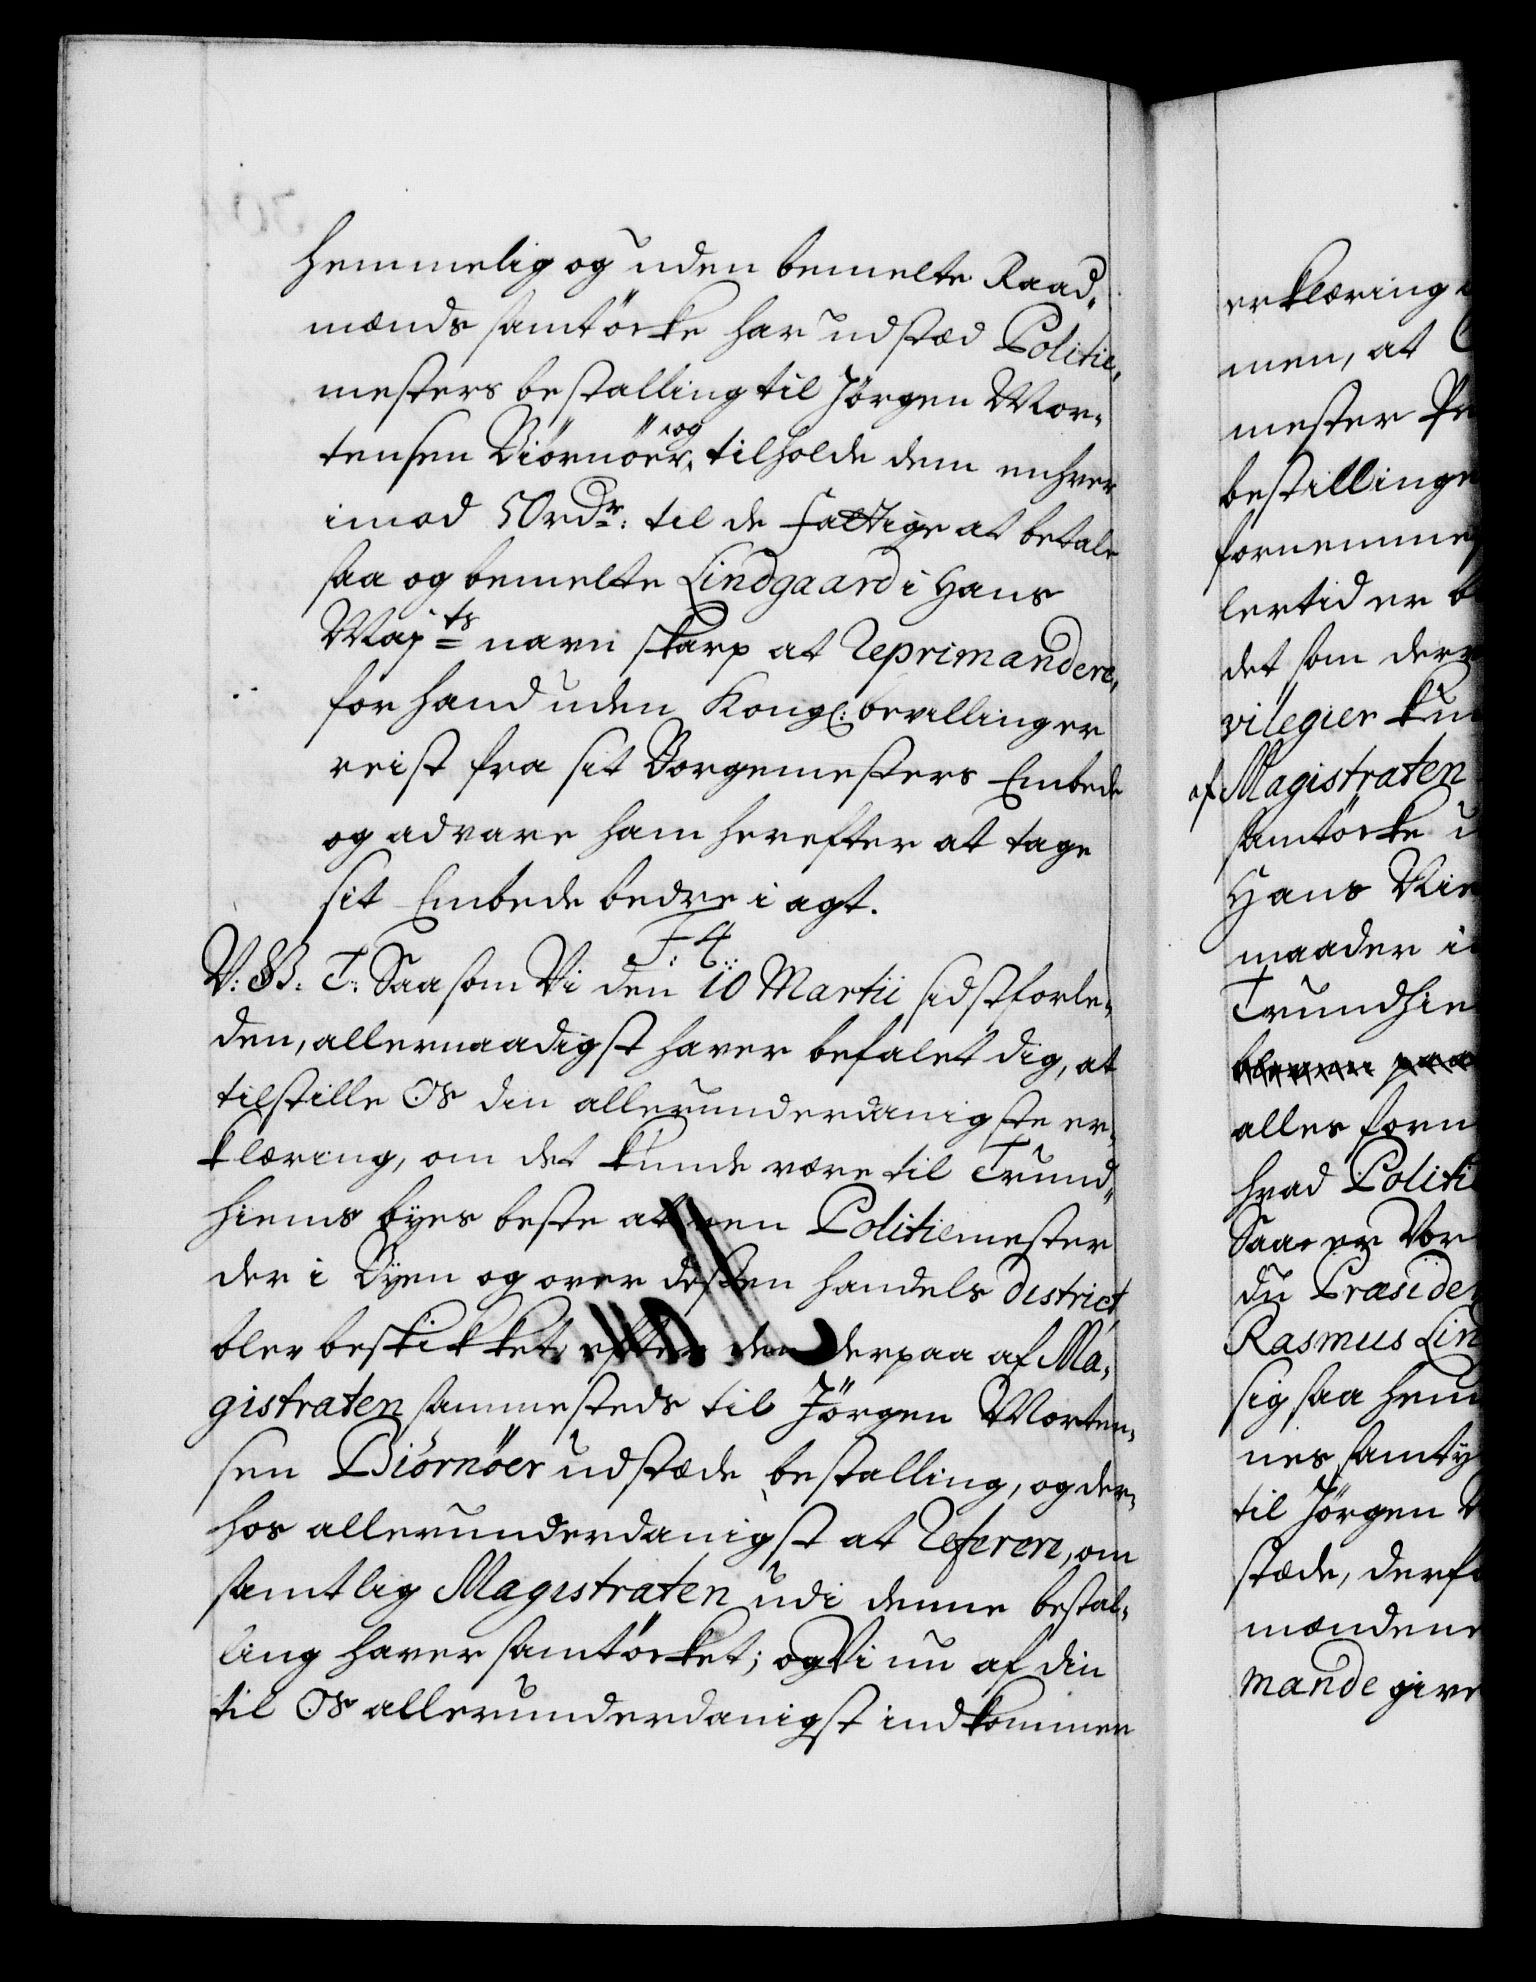 hemmelig og uden bemelte Raad-
mænds samtöcke har udstæd Politie-
mesters bestalling til Jörgen Mor-
tensen Biörnöer, og tilholde dem enhver
imod 50 rdr: til de fattige at betale
saa og bemelte Lindgaard i Hans
Majts navn skarp at Reprimandere,
for hand uden Kongl: bevillinger
reist fra sit Borgemesters Embede
og advare ham herefter at tage
sit Embede bedre i agt.
F: 4.
V: G: T: Saasom Vi den 10 Martii sidstforle-
den, allernaadigst haver befalet dig, at
tilstille Os din allerunderdanigste er-
klæring, om det kunde være til Trund-
hiems byes beste at en Politiemester
der i Byen og over dessen handels District,
blev beskikket efter den derpaa af Ma-
gistraten sammesteds til Jörgen Morten-
sen Biörnöer udstæde bestalling, og der-
hos allerunderdanigst at Referere, om
samtlig Magistraten udi denne bestal-
ling haver samtöcket; og Vi nu af din
til Os allerunderdanigst indkommen
erklæring
men, at
mester
bestillinge
fornemme
lertid er
det som der
vilegier
af Magistraten
samtöcke
Hans
maader
Trundhie
alles forn
hvad Politi
Saa er Vor
du Præside
Rasmus Lin
sig saa hem
nes samty
til Jörgen
stæde, derf
mændene
mande give